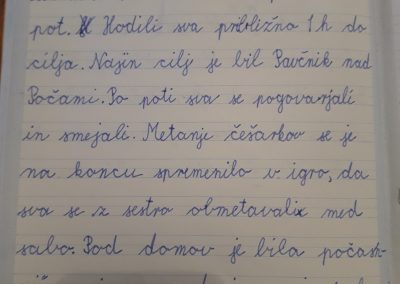 pot. Hodili sva približno 1h do
cilja. Najin cilj je bil Pavčnik nad
Počami. Po poti sva se pogovarjali
in smejali. Metanje češarkov se je
na koncu spremenilo v igro, da
sva se z sestro obmetavali med
sabo. Pod domov je bila počash-